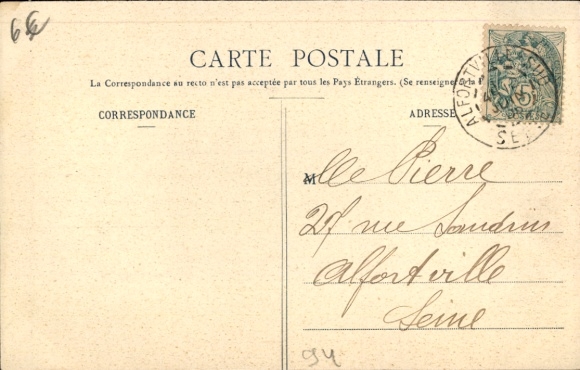 6€
CARTE POSTALE
La Correspondance au recto n'est pas acceptée par tous les Pays Étrangers. (Se renseigner à la
CORRESPONDANCE
ADRESSE
ALFORTVILLE
SEINE
5
Mlle Pierre
27 rue
Alfortville
Seine
94